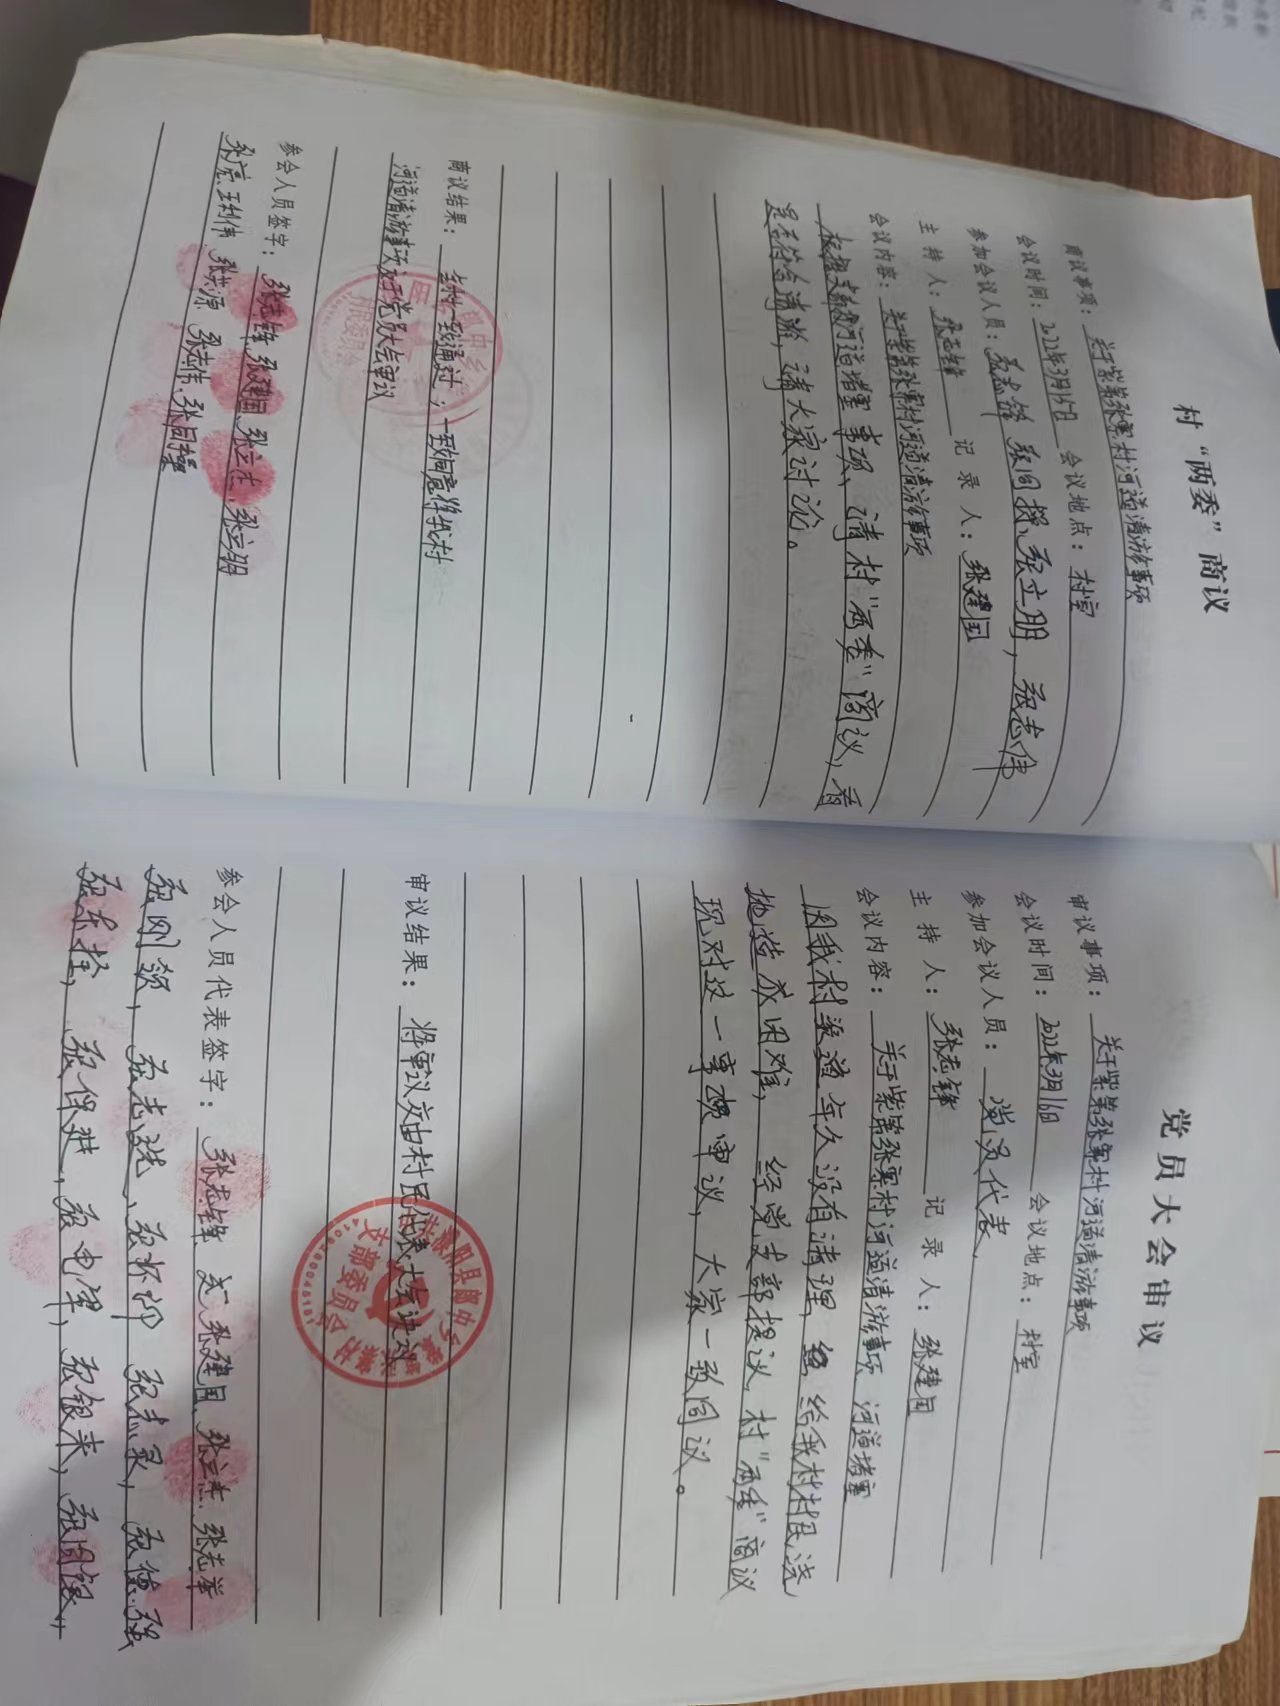 村“两委”商议
商议事项：关于柴第张寨村河道清淤事项
会议时间：2022年3月15日 会议地点：村室
参加会议人员：张志锋 张同探，张立朋，张志伟
主持人：张志锋 记录人：张建国
会议内容：关于柴第张寨村河道清淤事项
根据支部河道堵塞事项，请村“两委”商议，看
是否符合清淤，请大家讨论。
商议结果：全村一致通过，一致同意将我村
河道清淤事项交于党员大会审议
参会人员签字：张志锋、张建国、张立杰、张立朋
王利伟 张洪源 张志伟、张同探
党员大会审议
审议事项：关于柴第张寨村河道清淤事项
会议时间：2022年3月16日 会议地点：村室
参加会议人员：党员代表
主持人：张志锋 记录人：张建国
会议内容：关于柴第张寨村河道清淤事项、河道堵塞
因我村渠道年久没有清理，给我村村民浇
地造成困难，经党支部提议，村“两委”商议
现对这一事项审议，大家一致同议。
审议结果：将审议交由村民代表大会决议
支部委员会
参会人员代表签字：张志锋 张建国、张立杰、张志举
张刚领，张志选、张怀印 张志录，张德强
张东拴，张保进，张电军，张银来，张同银